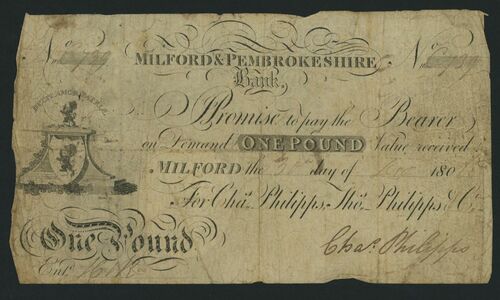 No 739 No 739
MILFORD & PEMBROKESHIRE
Bank,
I Promise to pay the Bearer
on Demand ONE POUND Value received
MILFORD the day of 180
For Chas. Philipps, Thos. Philipps & Co.
One Pound
Chas. Philipps
Entd.